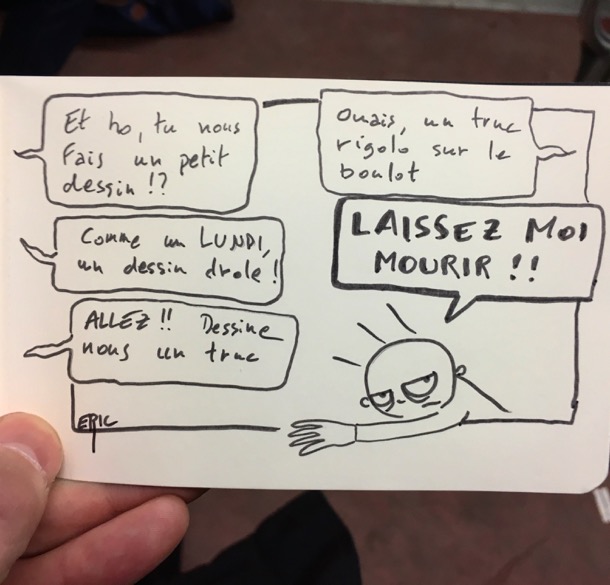 Et ho, tu nous
fais un petit
dessin !?
Ouais, un truc
rigolo sur le
boulot
Comme un LUNDI,
un dessin drole !
ALLEZ !! Dessine
nous un truc
LAISSEZ MOI
MOURIR !!
ERIC